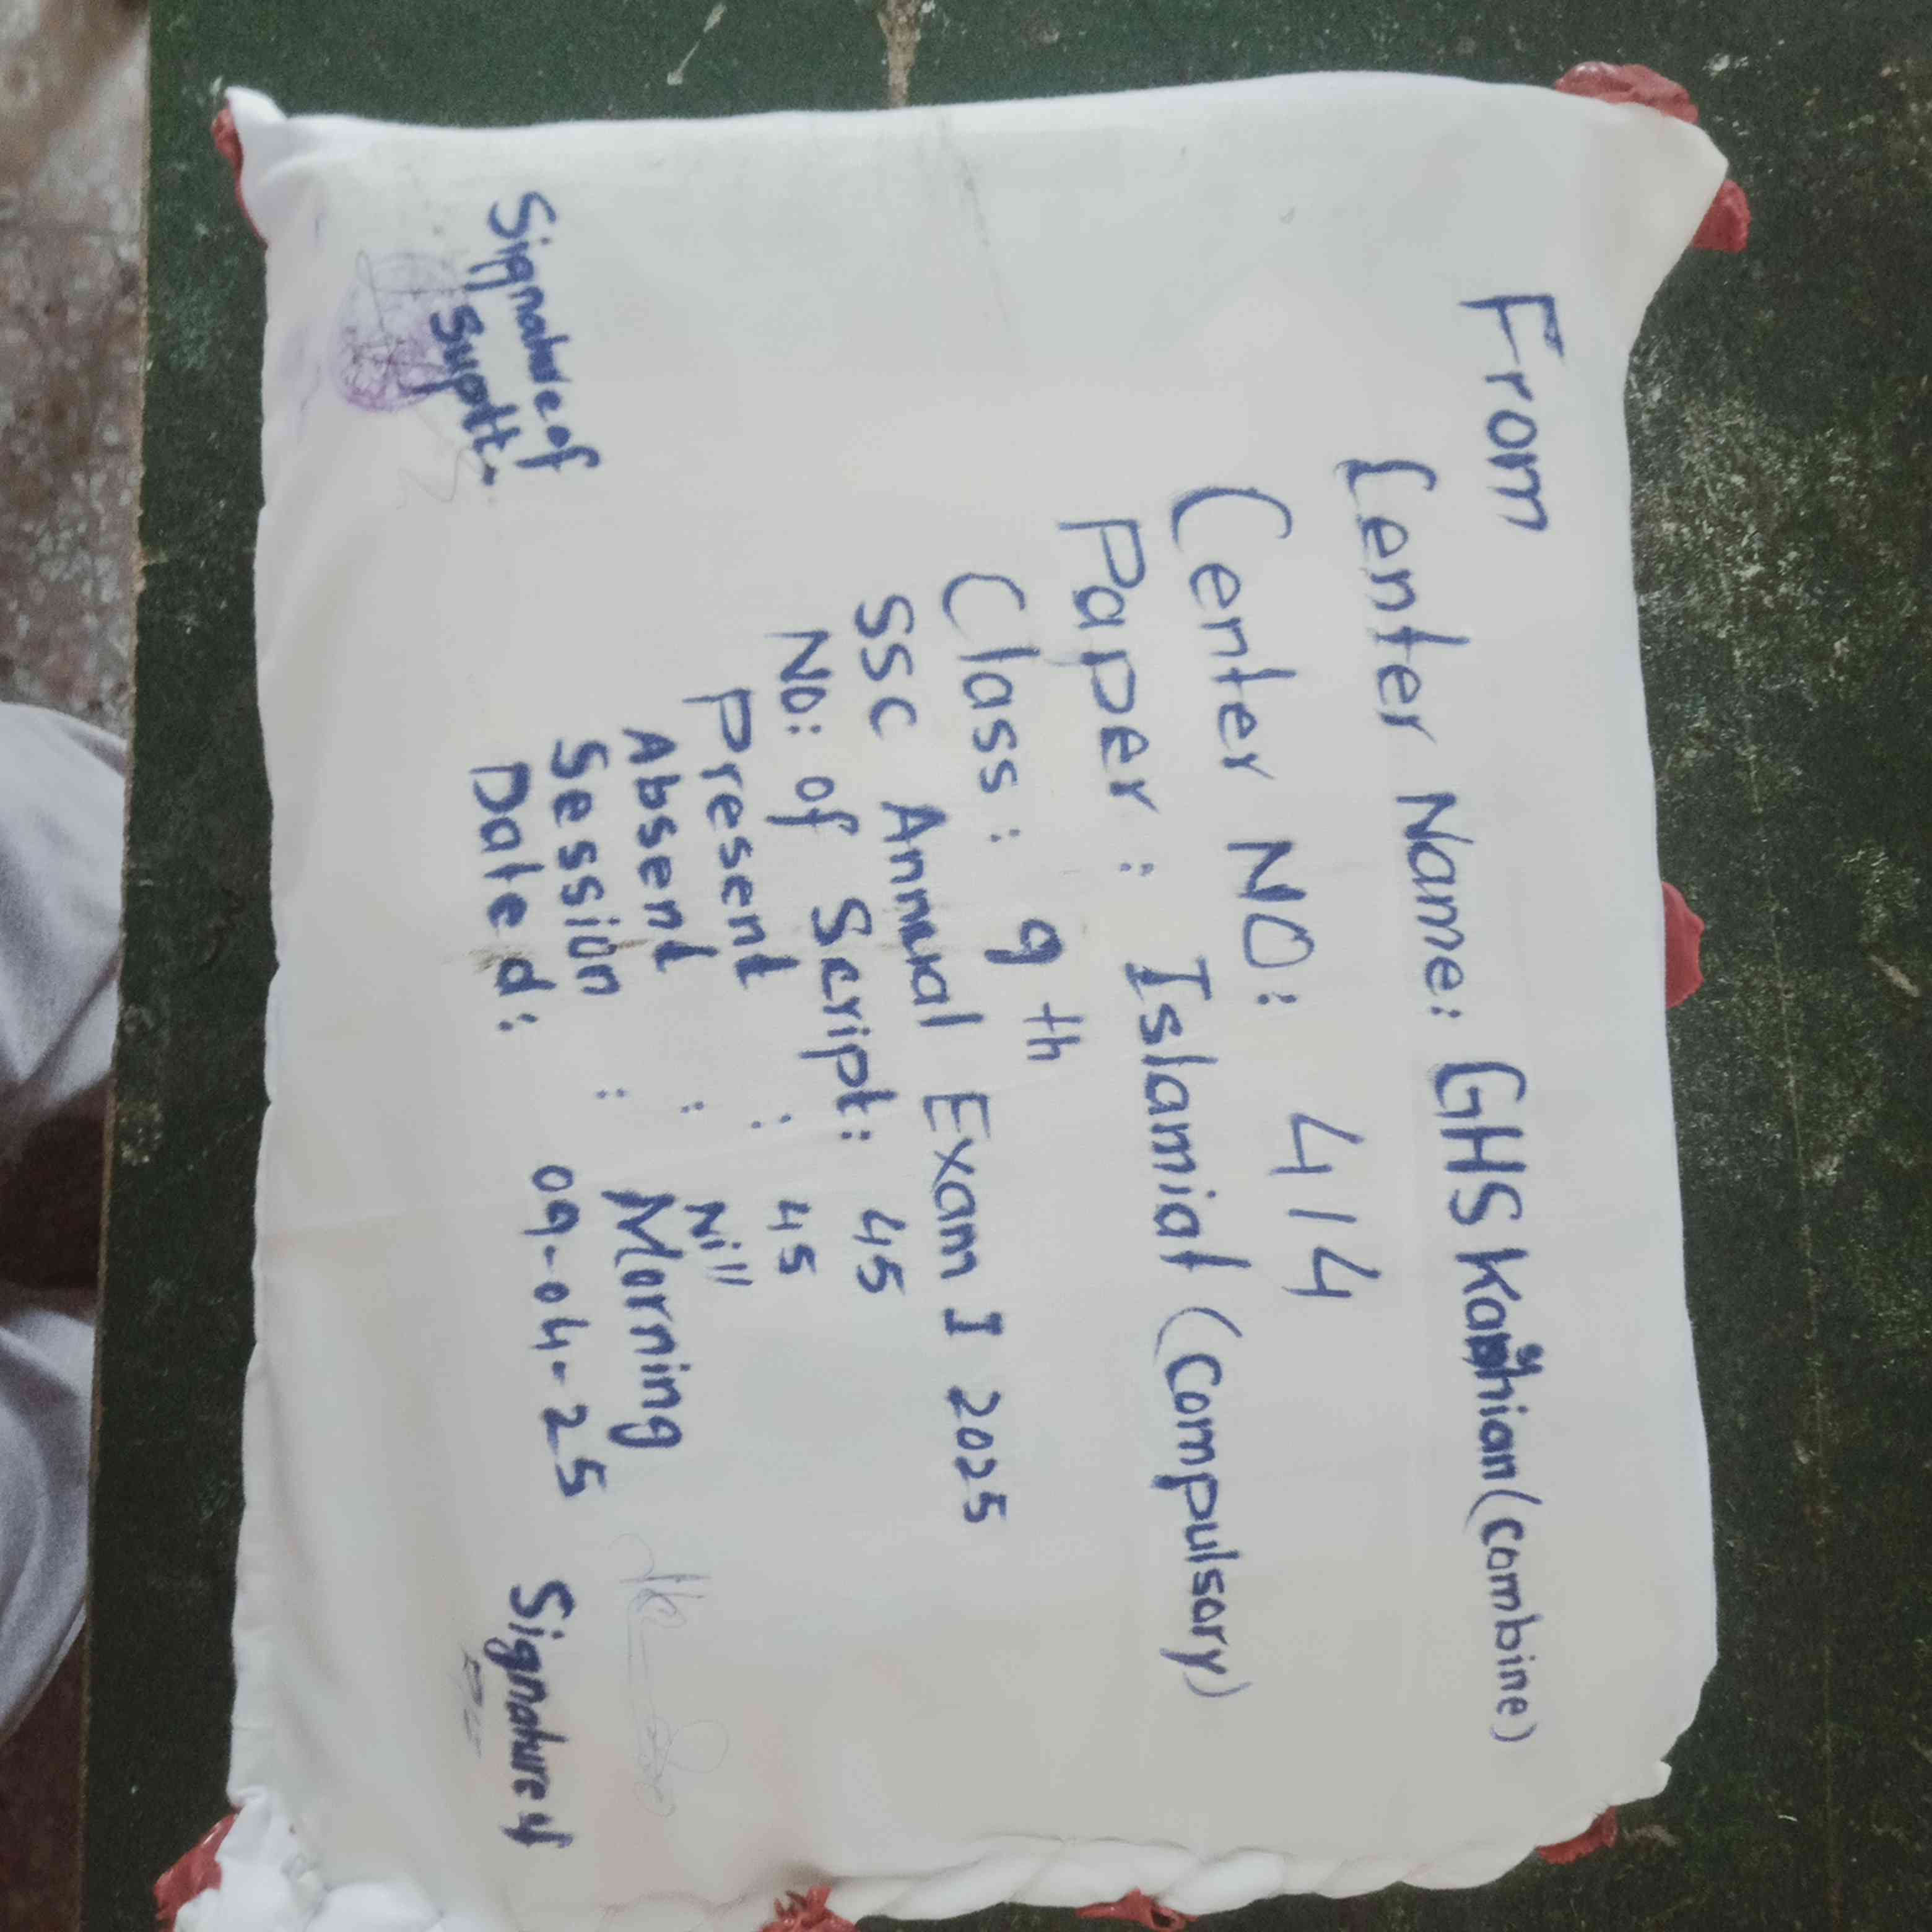 From
Center Name: GHS Kanhian (Combine)
Center NO: 414
Paper : Islamiat (Compulsory)
Class : 9th
SSC Annual Exam I 2025
No: of Script: 45
Present : 45
Absent : Nill
Session : Morning
Dated: 09-04-25
Signature of
Suptt.
Signature of